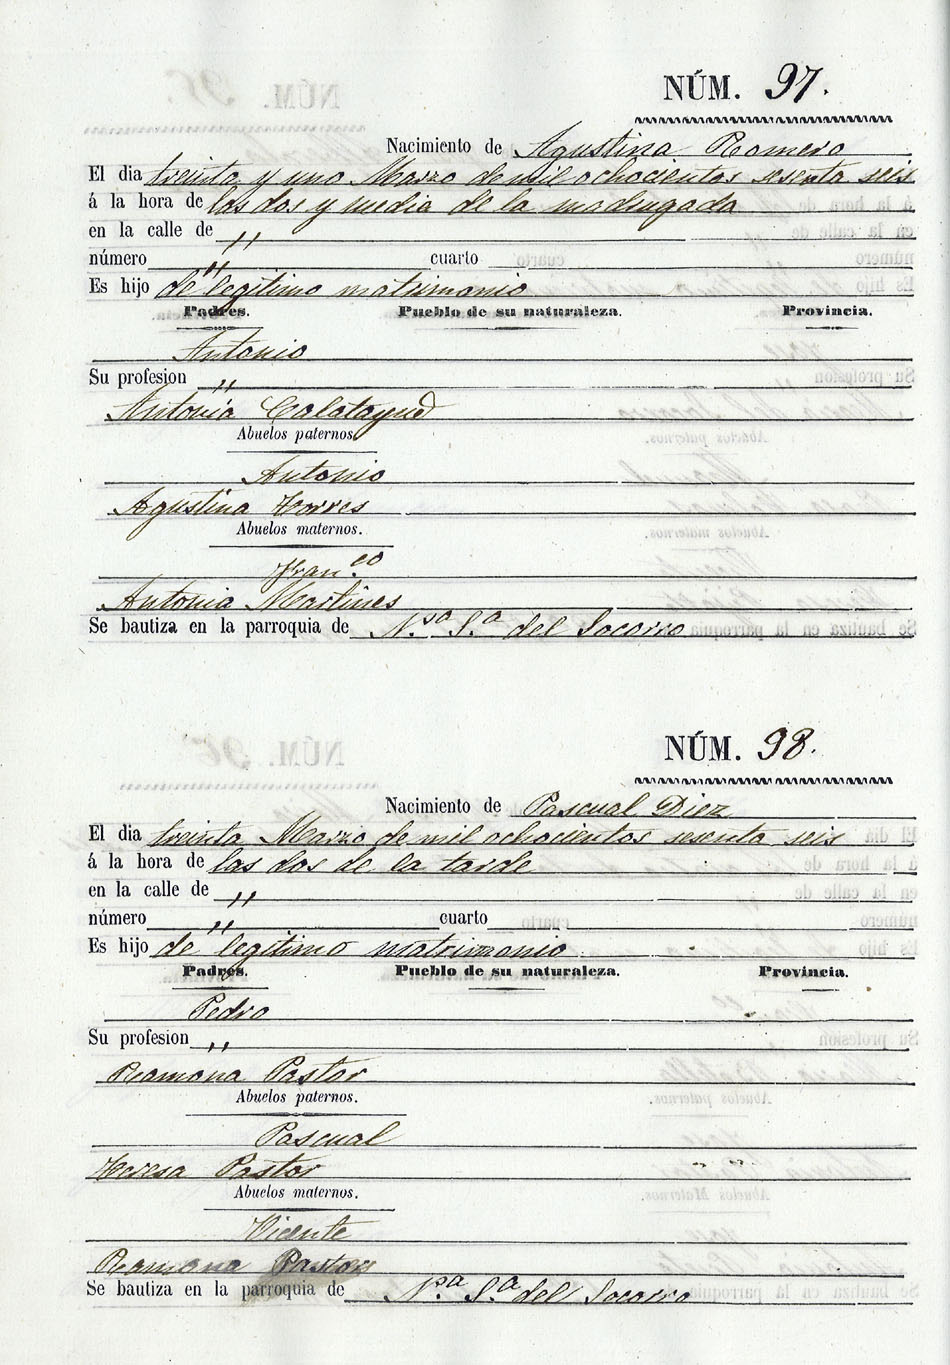 NÚM. 97.
Nacimiento de Agustina Romero
El dia treinta y uno Marzo de mil ochocientos sesenta seis
á la hora de las dos y media de la madrugada
en la calle de "
número " cuarto
Es hijo de legitimo matrimonio
Padres. Pueblo de su naturaleza. Provincia.
Antonio
Su profesion "
Antonia Calatayud
Abuelos paternos.
Antonio
Agustina Torres
Abuelos maternos.
Fran.co
Antonia Martines
Se bautiza en la parroquia de N.sa S.a del Socorro
NÚM. 98.
Nacimiento de Pascual Diez
El dia treinta Marzo de mil ochocientos sesenta seis
á la hora de las dos de la tarde
en la calle de "
número " cuarto
Es hijo de legitimo matrimonio
Padres. Pueblo de su naturaleza. Provincia.
Pedro
Su profesion "
Ramona Pastor
Abuelos paternos.
Pascual
Teresa Pastor
Abuelos maternos.
Vicente
Ramona Pastor
Se bautiza en la parroquia de N.sa S.a del Socorro